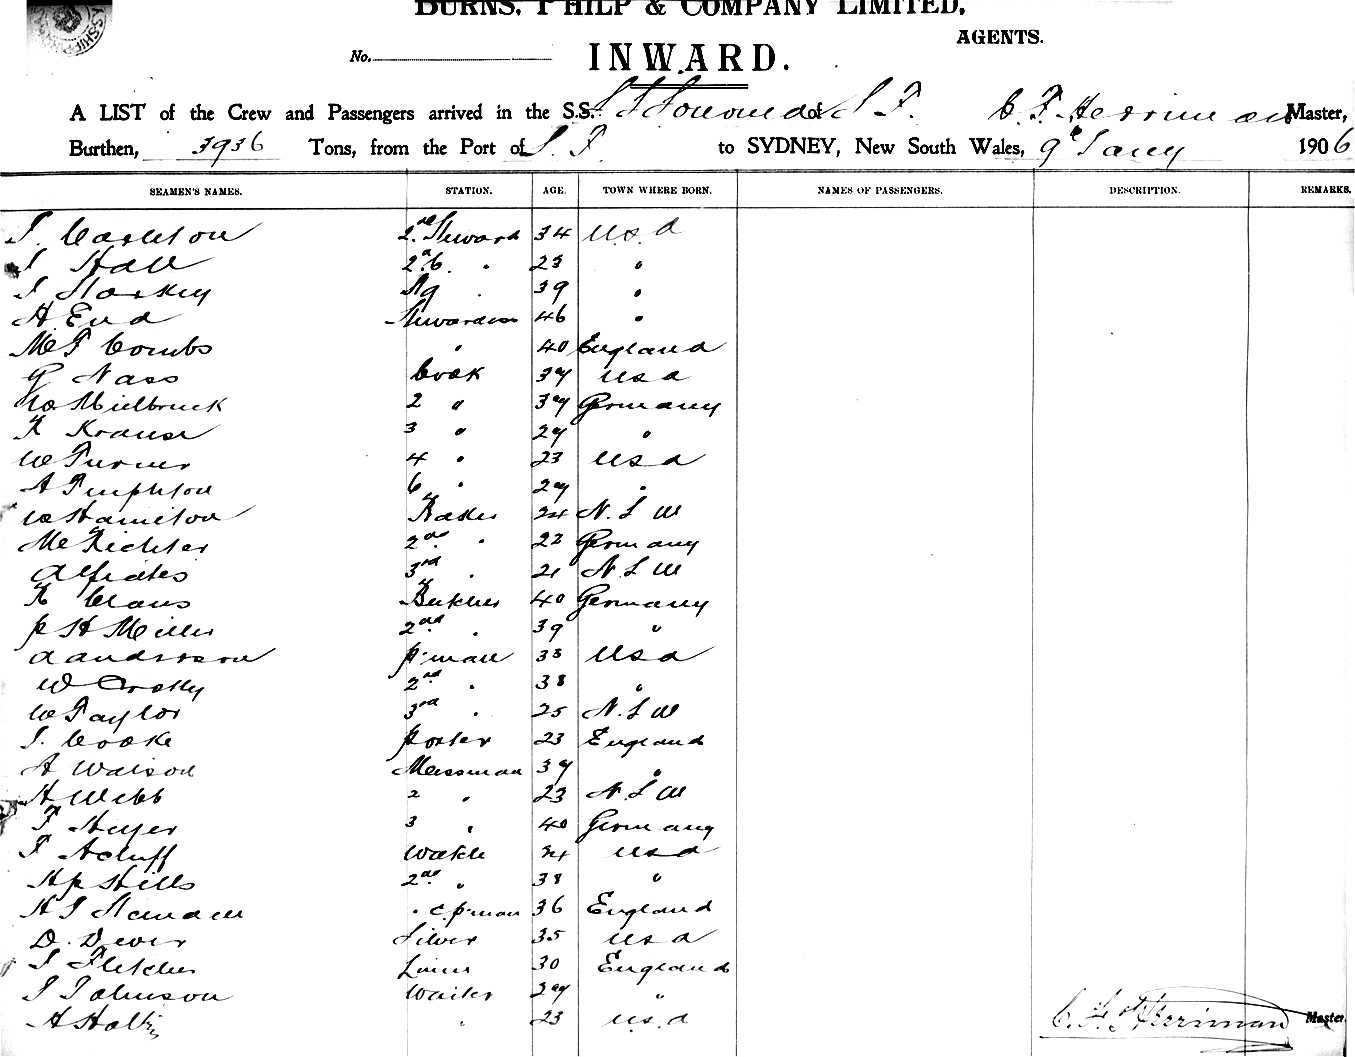 BURNS, PHILP & COMPANY LIMITED,
AGENTS.
No.
INWARD.
A LIST of the Crew and Passengers arrived in the S.S. Sonoma of S F. C. F. Herriman Master,
Burthen, 3936 Tons, from the Port of S. F. to SYDNEY, New South Wales, 9th Jany 1906
SEAMEN'S NAMES. STATION. AGE. TOWN WHERE BORN. NAMES OF PASSENGERS. DESCRIPTION. REMARKS.
J. Carleton 2nd Steward 34 U.S.A
J Hall 23 "
39 "
Stewardess 46 "
Combs " 40 England
G Nass Cook 37 USA
Milbruck 2 " 37 Germany
Krause 3 " 27 "
W Turner 4 " 23 USA
A 6 " 27 "
W Hamilton Baker 24 N.S.W
Richter 2nd " 22 Germany
3rd " 21 N.S.W
K Claus Butcher 40 Germany
P H Miller 2nd " 39 "
A Anderson P.man 33 USA
W 2nd " 38 "
W Taylor 3rd " 25 N.S.W
J. Cooke Porter 23 England
A Watson Messman 37 "
H Webb 2 " 23 N.S.W
F Heyer 3 " 40 Germany
F Acluff Watch 24 USA
H P Hills 2nd " 38 "
H J 36 England
D. Dever Silver 35 USA
J Fletcher Linen 30 England
J Johnson Waiter 27 "
A " 23 U.S.A
C. F. Herriman Master.